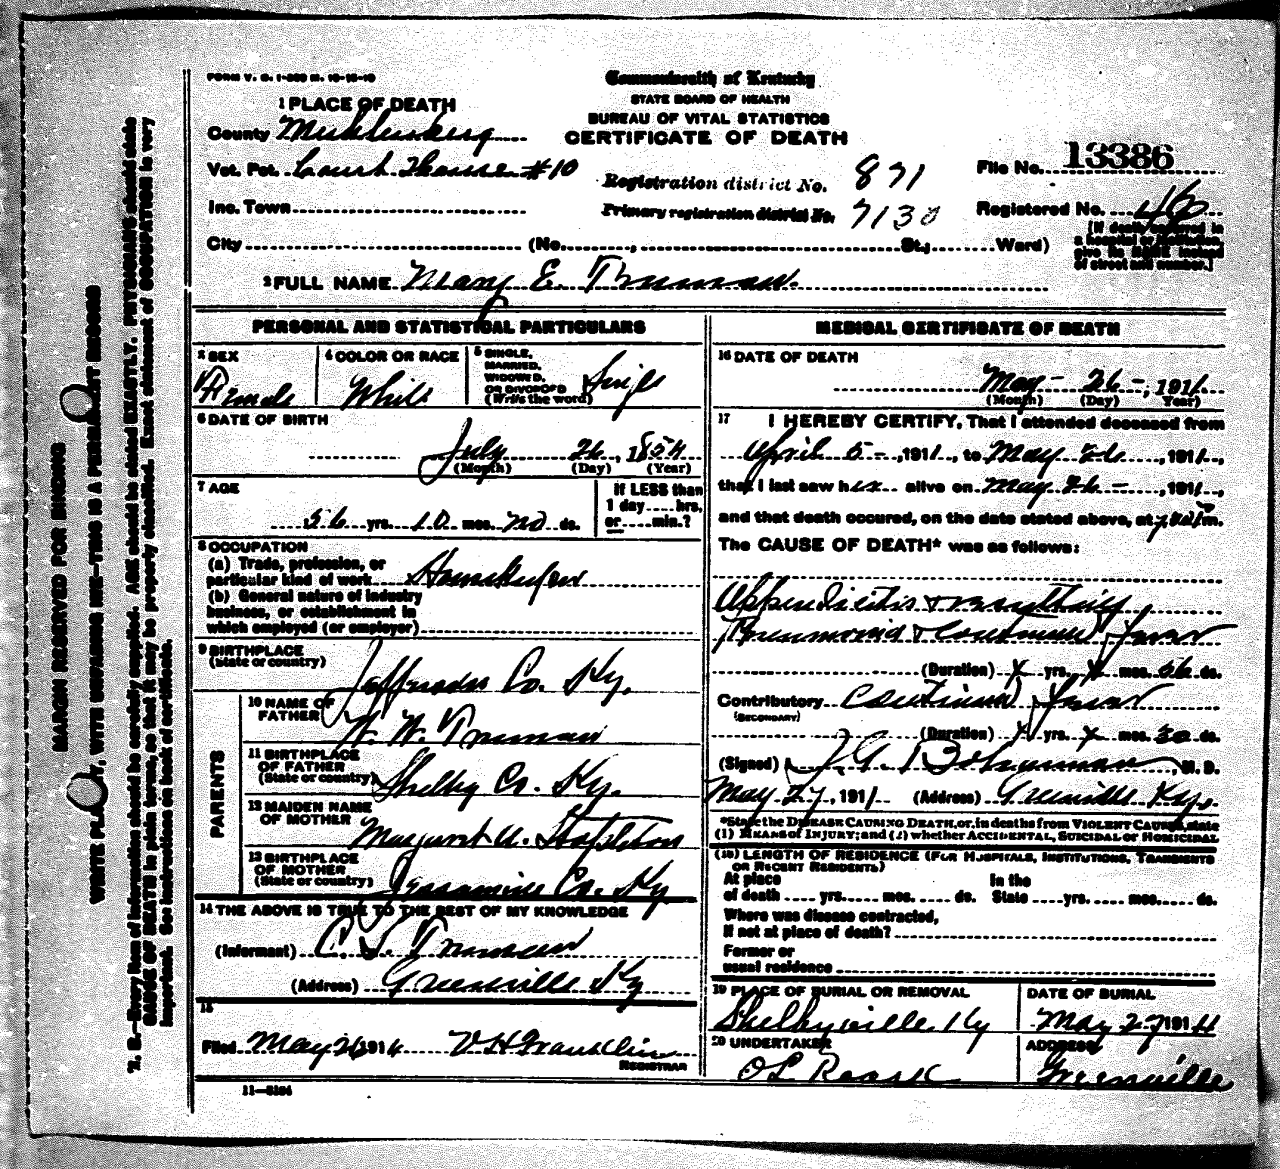 FORM V. S. 1-200 M. 10-15-10
Commonwealth of Kentucky
STATE BOARD OF HEALTH
BUREAU OF VITAL STATISTICS
CERTIFICATE OF DEATH
1 PLACE OF DEATH
County Muhlenberg
Vot. Pct. Court House #10
Inc. Town
City (No. , St., Ward)
Registration district No. 871
Primary registration district No. 7130
File No. 13386
Registered No. 46
[If death occurred in
a hospital or institution,
give its NAME instead
of street and number.]
2 FULL NAME Mary E. Truman.
PERSONAL AND STATISTICAL PARTICULARS
3 SEX
Female
4 COLOR OR RACE
White
5 SINGLE,
MARRIED,
WIDOWED,
OR DIVORCED
(Write the word)
Single
6 DATE OF BIRTH
July 26, 1854
(Month) (Day) (Year)
7 AGE
56 yrs. 10 mos. no ds.
If LESS than
1 day ... hrs.
or ... min.?
8 OCCUPATION
(a) Trade, profession, or
particular kind of work Housekeeper
(b) General nature of industry
business, or establishment in
which employed (or employer)
9 BIRTHPLACE
(State or country)
Jefferson Co. Ky.
PARENTS
10 NAME OF
FATHER
W. W. Truman
11 BIRTHPLACE
OF FATHER
(State or country)
Shelby Co. Ky.
12 MAIDEN NAME
OF MOTHER
Margaret A. Stapleton
13 BIRTHPLACE
OF MOTHER
(State or country)
Jessamine Co. Ky
14 THE ABOVE IS TRUE TO THE BEST OF MY KNOWLEDGE
(Informant) C. S. Truman
(Address) Greenville Ky
15
Filed May 26 1911 V H Franklin
REGISTRAR
11-5184
MEDICAL CERTIFICATE OF DEATH
16 DATE OF DEATH
May - 26 -, 1911
(Month) (Day) Year)
17 I HEREBY CERTIFY, That I attended deceased from
April 5 -, 1911, to May 26, 1911,
that I last saw her alive on May 26 -, 1911,
and that death occured, on the date stated above, at m.
The CAUSE OF DEATH* was as follows:
Appendicitis +
Pneumonia & Continued Fever
(Duration) x yrs. x mos. 56 ds.
Contributory Continued Fever
(SECONDARY)
(Duration) x yrs. x mos. 30 ds.
(Signed) J. G. Bohannan, M. D.
May 27, 1911 (Address) Greenville Ky.
*State the DISEASE CAUSING DEATH, or, in deaths from VIOLENT CAUSES, state
(1) MEANS of INJURY; and (2) whether ACCIDENTAL, SUICIDAL or HOMICIDAL
(18) LENGTH OF RESIDENCE (FOR HOSPITALS, INSTITUTIONS, TRANSIENTS
OR RECENT RESIDENTS)
At place In the
of death yrs. mos. ds. State yrs. mos. ds.
Where was disease contracted,
if not at place of death?
Former or
usual residence
19 PLACE OF BURIAL OR REMOVAL
Shelbyville Ky
DATE OF BURIAL
May 27 1911
20 UNDERTAKER
O L Roark
ADDRESS
Greenville
MARGIN RESERVED FOR BINDING
WRITE PLAINLY, WITH UNFADING INK—THIS IS A PERMANENT RECORD
N. B.—Every item of information should be carefully supplied. AGE should be stated EXACTLY. PHYSICIANS should state
CAUSE OF DEATH in plain terms, so that it may be properly classified. Exact statement of OCCUPATION is very
important. See instructions on back of certificate.